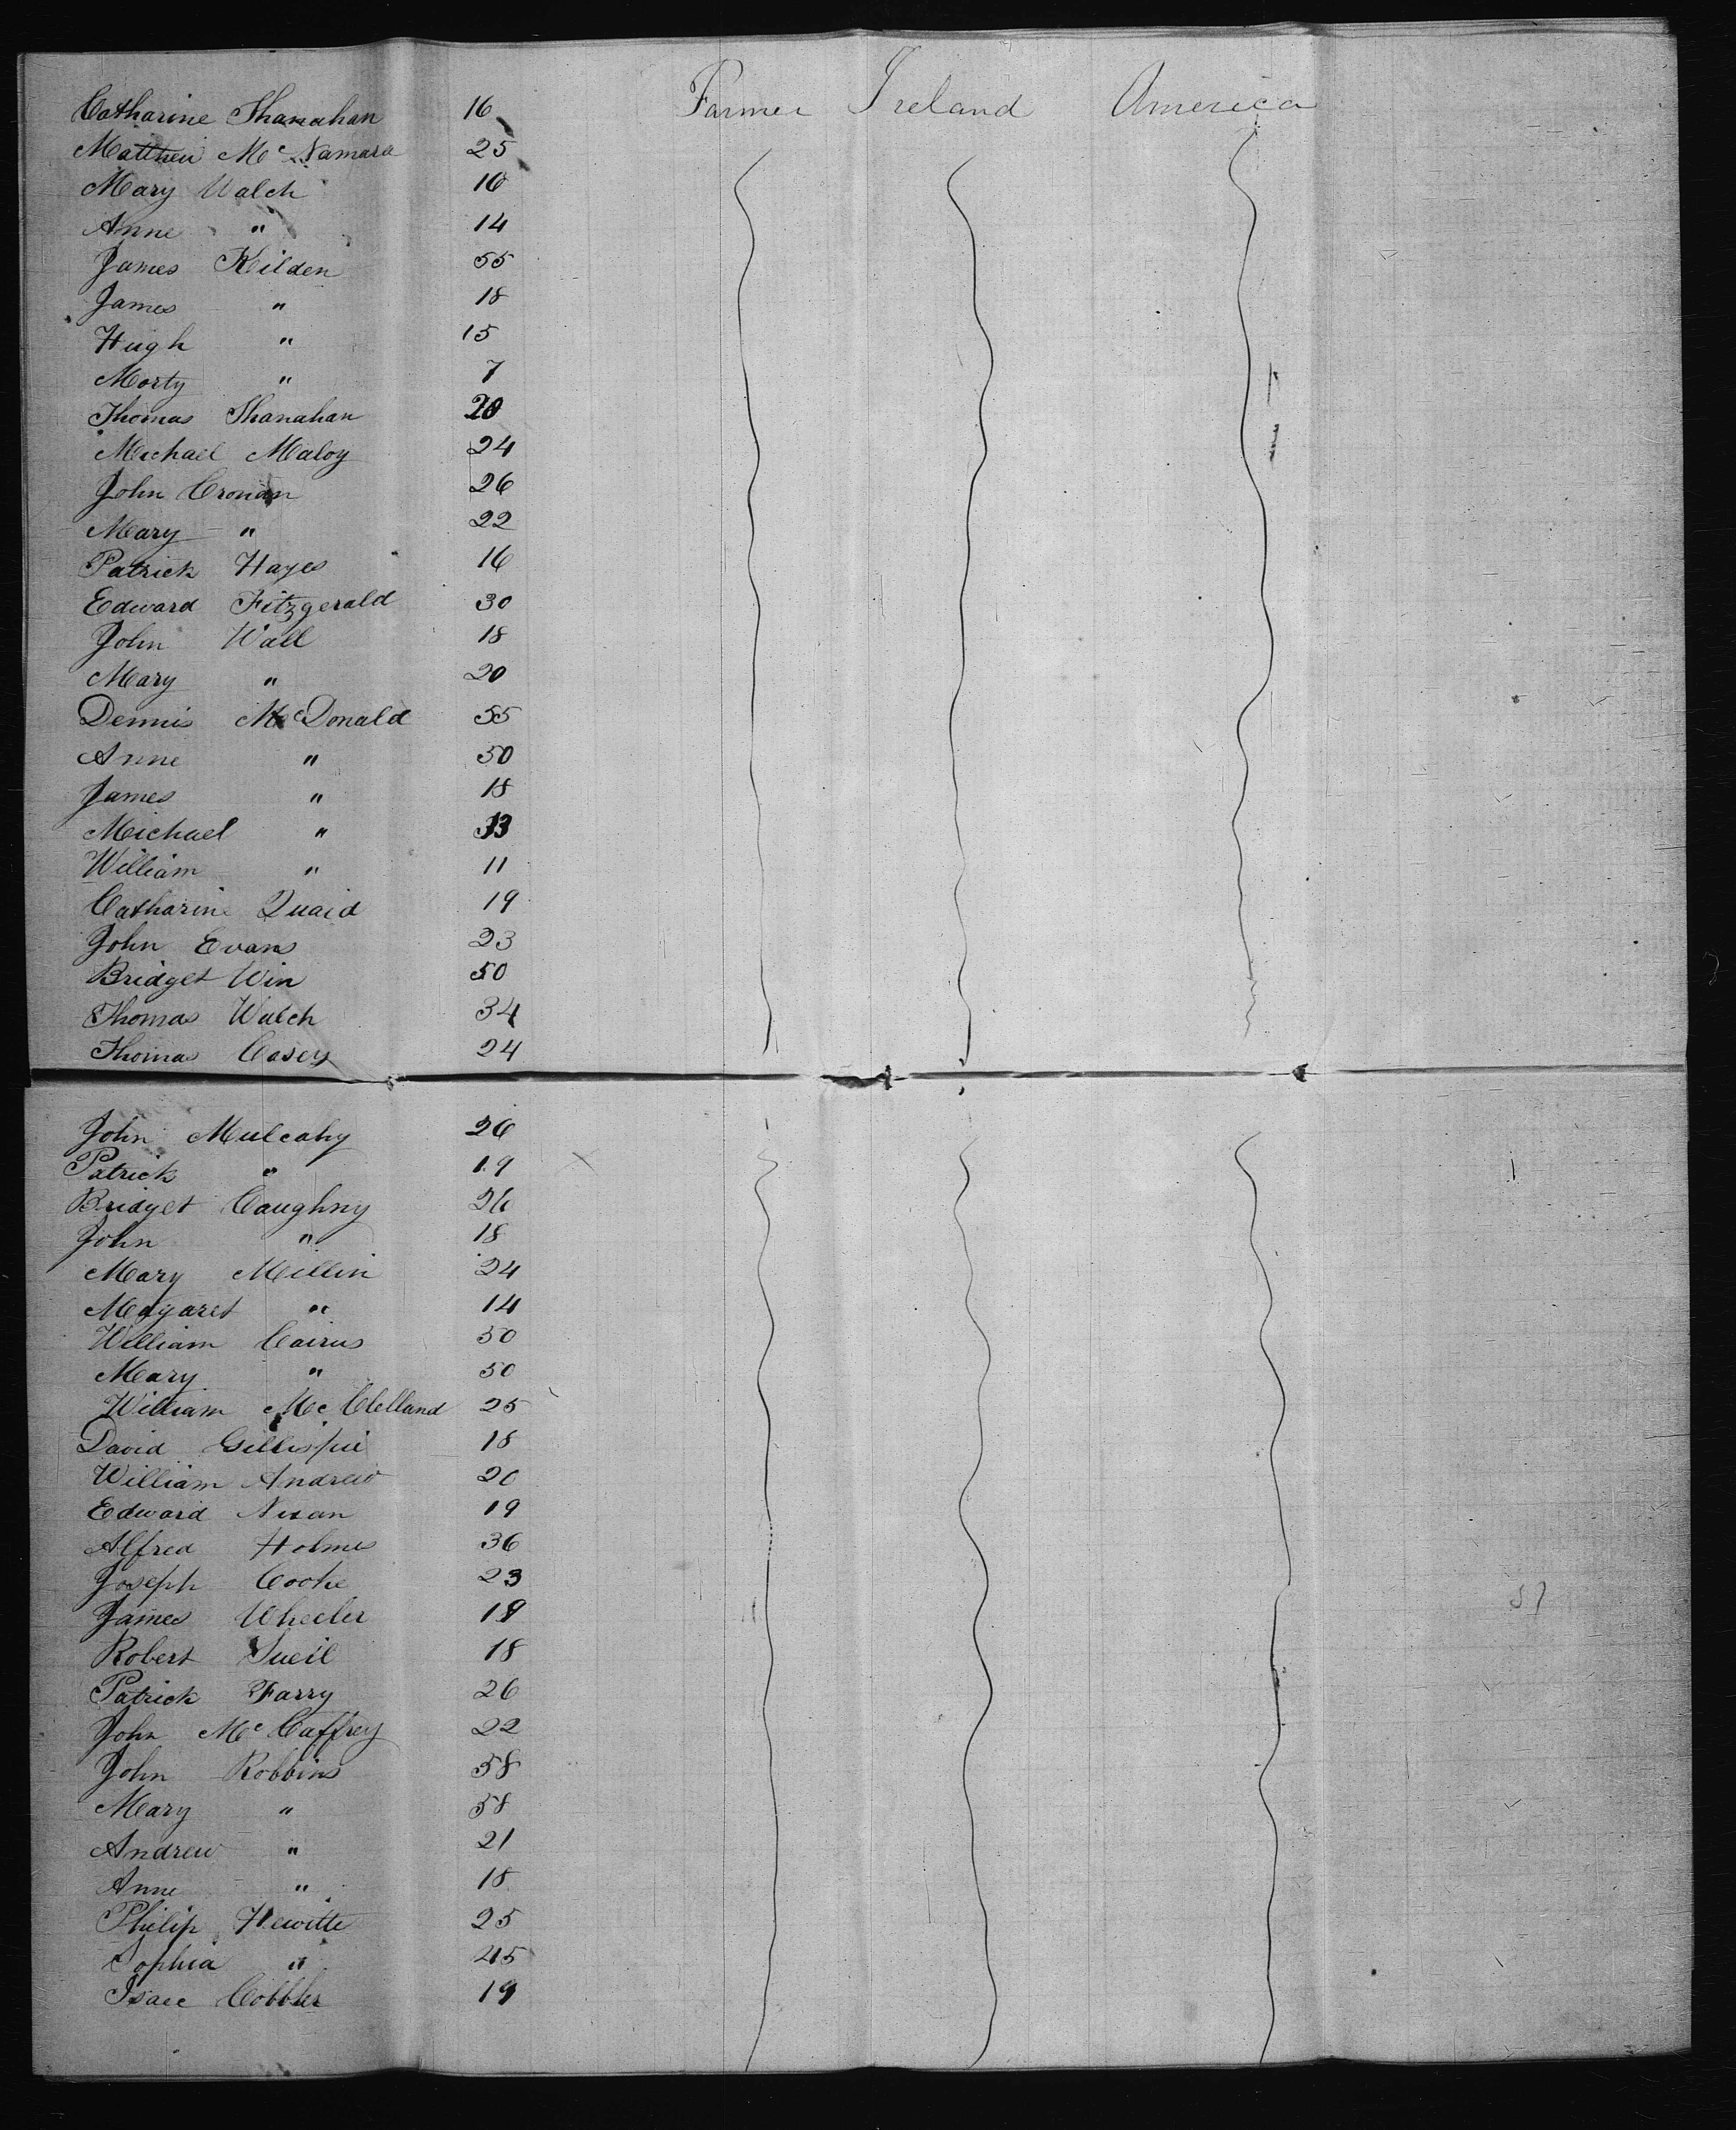 Catharine Shanahan 16 Farmer Ireland America
Matthew McNamara 25
Mary Walch 16
Anne " 14
James Kilden 55
James " 18
Hugh " 15
Morty " 7
Thomas Shanahan 20
Michael Maloy 24
John Cronan 26
Mary " 22
Patrick Hayes 16
Edward Fitzgerald 30
John Wall 18
Mary " 20
Dennis McDonald 55
Anne " 50
James " 18
Michael " 13
William " 11
Catharine Quaid 19
John Evans 23
Bridget Win 50
Thomas Walch 34
Thomas Casey 24
John Mulcahy 26
Patrick " 19
Bridget Caughny 26
John " 18
Mary Millin 24
Magaret " 14
William Cairus 50
Mary " 50
William McClelland 25
David Gillispie 18
William Andrew 20
Edward Nixan 19
Alfred Holmes 36
Joseph Cooke 23
James Wheeler 19
Robert Sueil 18
Patrick Farry 26
John McCaffrey 22
John Robbins 58
Mary " 58
Andrew " 21
Anne " 18
Philip Hewitte 25
Sophia " 45
Isaac Cobbler 19